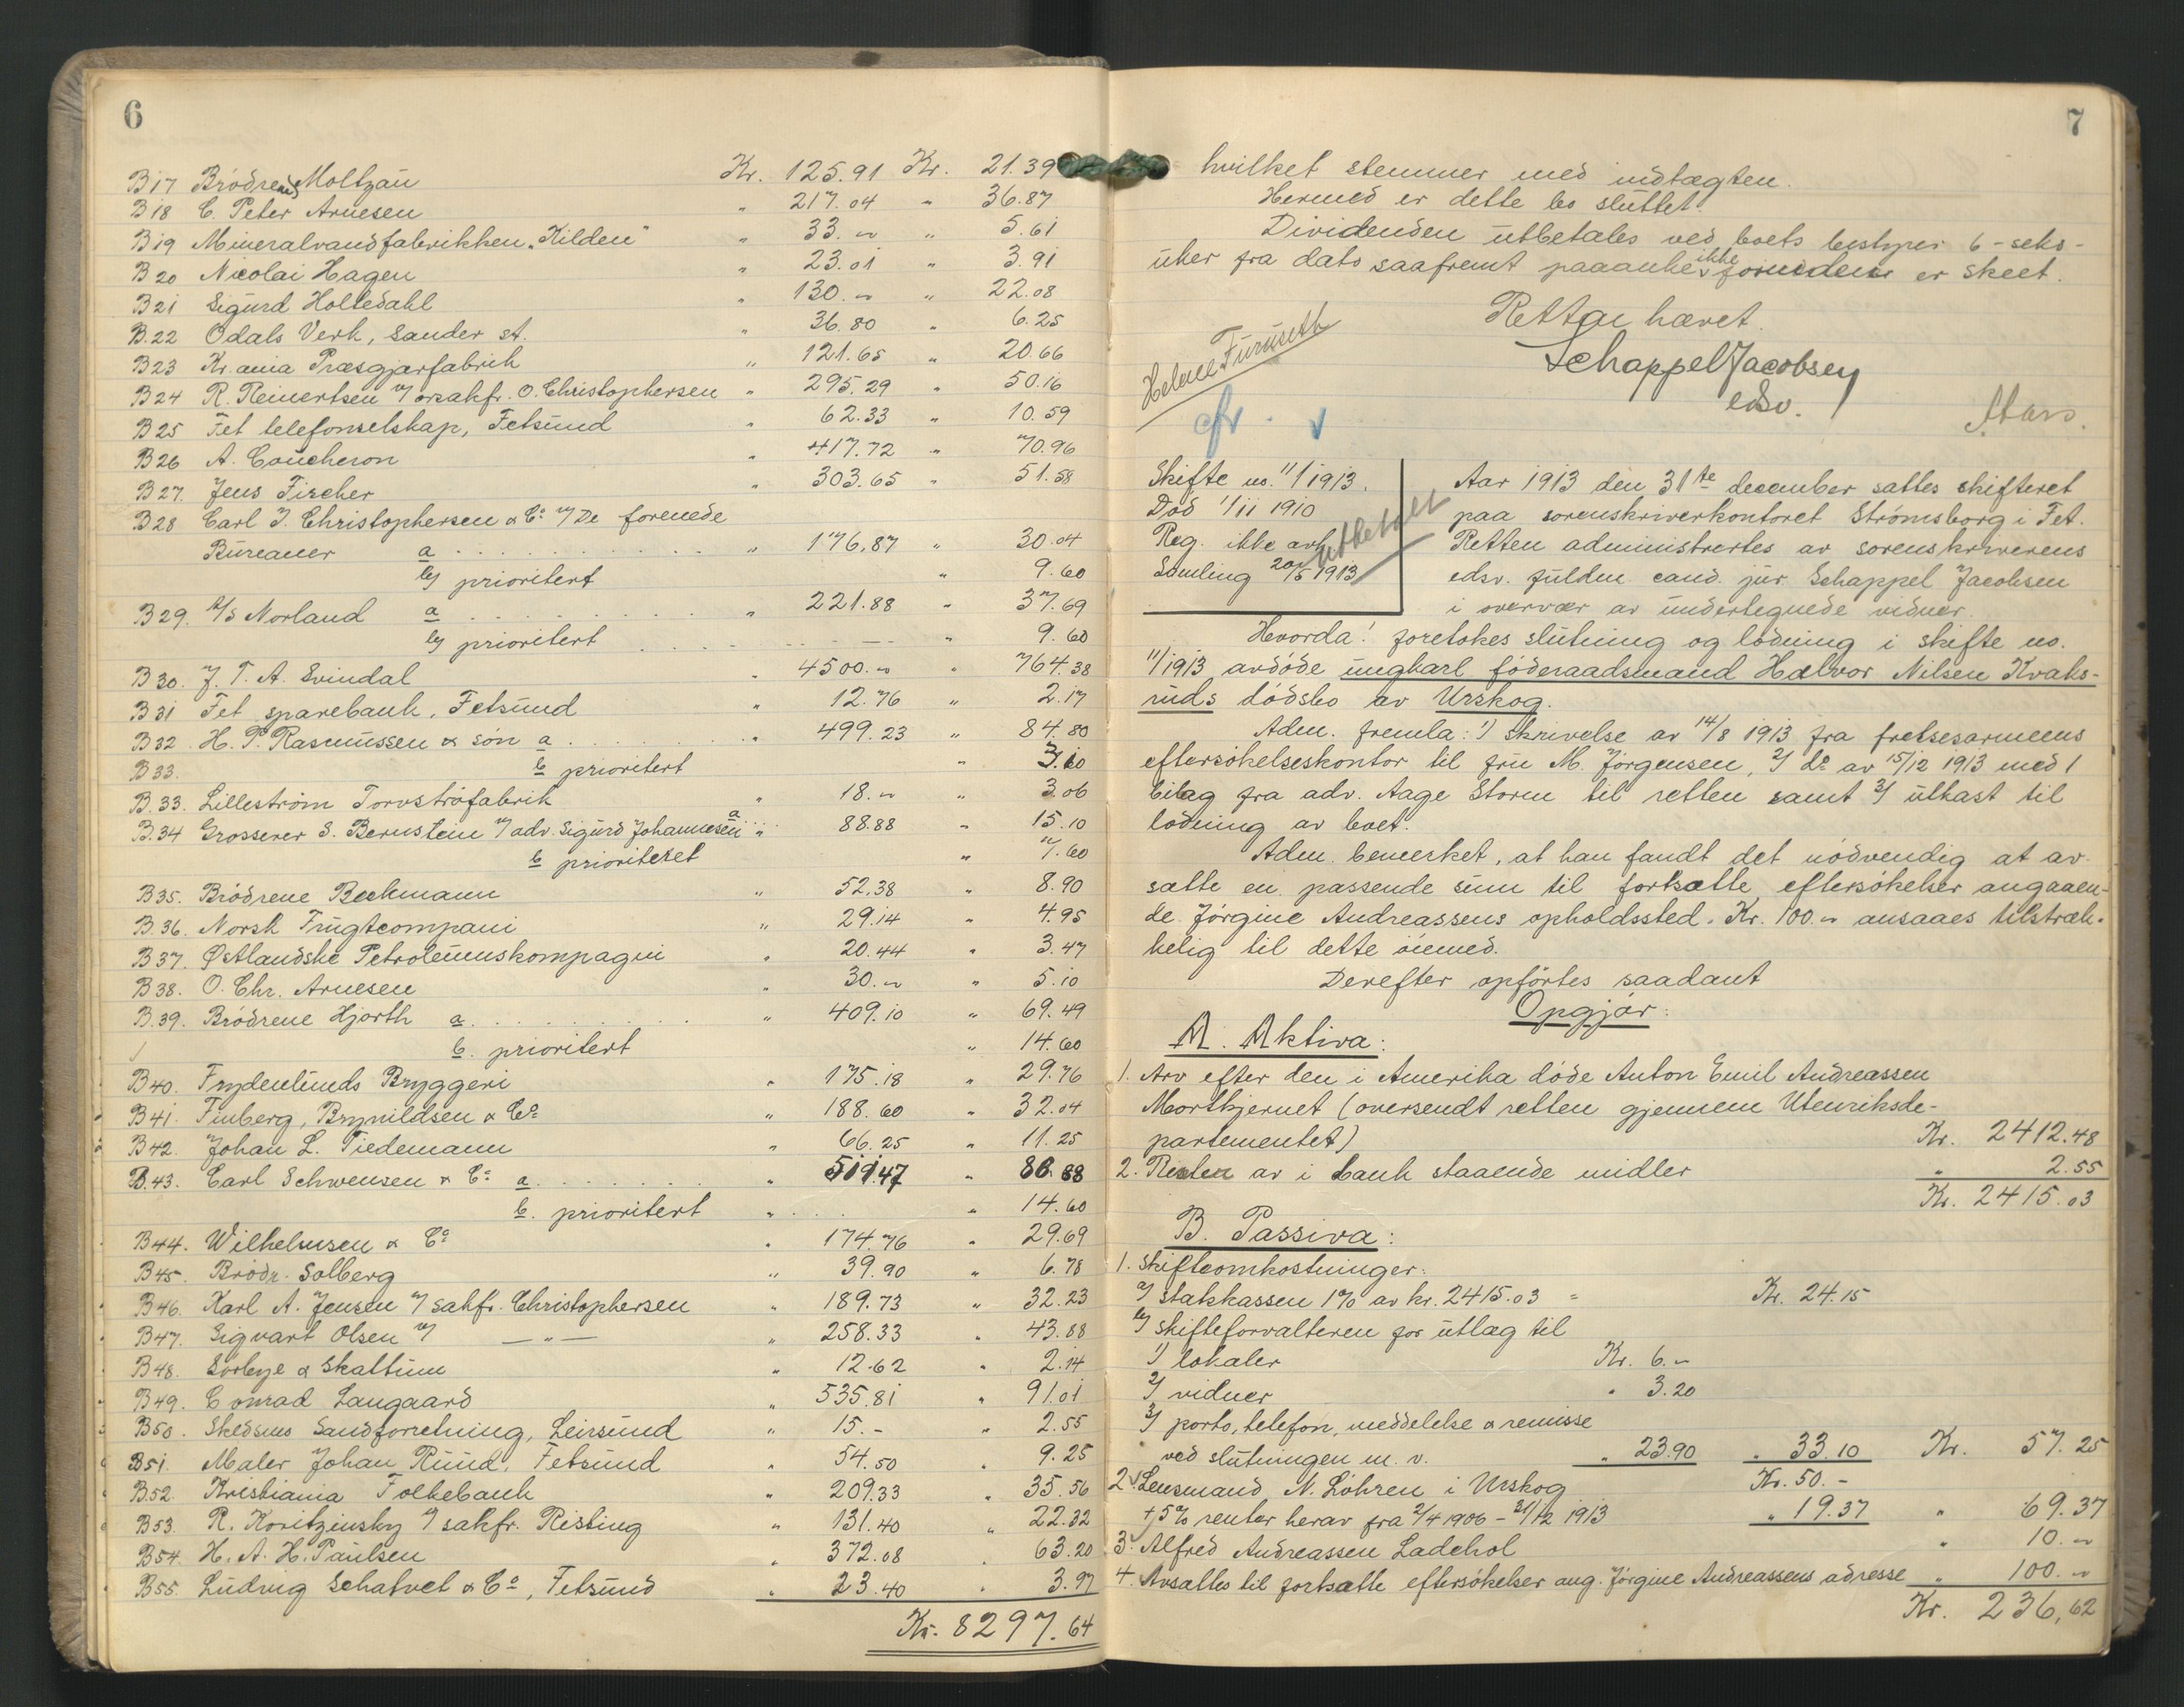 6
B17 Brödrene Moltzau Kr. 125.91 Kr. 21.39
B18 C. Peter Arnesen " 217.04 " 36.87
B19 Mineralvandfabrikken "Kilden" " 33.- " 5.61
B20 Nicolai Hagen " 23.01 " 3.91
B21 Sigurd Holtedahl " 130.- " 22.08
B.22 Odals Verk, Sander st. " 36.80 " 6.25
B23 Kr.ania Præsgjærfabrik " 121.65 " 20.66
B24 R. Reinertsen v/ orsakf. O. Christophersen " 295.29 " 50.16
B25 Fet telefonselskap, Fetsund " 62.33 " 10.59
B26 A. Coucheron " 417.72 " 70.96
B27. Jens Fischer " 303.65 " 51.58
B28 Carl J. Christophersen & Co v/ De forenede
Bureauer a " 176.87 " 30.04
b/ prioritert " 9.60
B29. A/S Norland a " 221.88 " 37.69
b/ prioritert " 9.60
B30. J. T. A. Svindal " 4500.- " 764.38
B31 Fet sparebank, Fetsund " 12.76 " 2.17
B32 H. P. Rasmussen & Søn a " 499.23 " 84.80
B33. b prioritert " 3.10
B.33. Lilleström Torvströfabrik " 18.- " 3.06
B.34 Grosserer S. Bernstein v/ adv. Sigurd Johannesen a " 88.88 " 15.10
b prioriteret " 7.60
B35. Brödrene Beckmann " 52.38 " 8.90
B.36. Norsk Frugtcompani " 29.14 " 4.95
B37. Østlandske Petroleumskompagni " 20.44 " 3.47
B38. O. Chr. Arnesen " 30.- " 5.10
B.39. Brödrene Hjorth a " 409.10 " 69.49
b. prioritert " 14.60
B40. Frydenlunds Bryggeri " 175.18 " 29.76
B41. Finberg, Brynildsen & Co " 188.60 " 32.04
B42. Johan L. Tiedemann " 66.25 " 11.25
B.43. Carl Schwensen & Co a " 511.47 " 86.88
b. prioritert " " 14.60
B44. Wilhelmsen & Co " 174.76 " 29.69
B45. Brödr. Solberg " 39.90 " 6.78
B46. Karl A. Jensen v/ sakf. Christophersen " 189.73 " 32.23
B47. Sigvart Olsen v/ — " — " 258.33 " 43.88
B48. Sörbye & Skattum " 12.62 " 2.14
B49. Conrad Langaard " 535.81 " 91.01
B50. Skedsmo Landforretning, Leirsund " 15.- " 2.55
B51. Maler Johan Ruud, Fetsund " 54.50 " 9.25
B.52. Kristiania Folkebank " 209.33 " 35.56
B53. R. Koritzinsky v/ sakf. Risting " 131.40 " 22.32
B54. H. A. H. Paulsen " 372.08 " 63.20
B55. Ludvig Schatvet & Co, Fetsund " 23.40 " 3.97
Kr. 8297.64
7
hvilket stemmer med indtægten.
Hermed er dette bo sluttet.
Dividenden utbetales ved boets bestyrer 6 - seks -
uker fra dato saafremt paaanke ikke forinden er skeet.
Retten hævet.
Schappel Jacobsen
edsv.
Helene Furuseth
Skifte no. 11/1913.
Död 1/11 1910
Reg. ikke avh.
Samling 20/5 1913
utbetalt
Aar 1913 den 31te december sattes skifteret
paa sorenskriverkontoret Strömsborg i Fet.
Retten administrertes av sorenskriverens
edsv. fuldm. cand. jur. Schappel Jacobsen
i overvær av undertegnede vidner.
Hvorda! foretokes slutning og lodning i skifte no.
11/1913 avdöde ungkarl föderaadsmand Halvor Nilsen Kvaks-
ruds dödsbo av Urskog.
Adm. fremla: 1) Skrivelse av 14/8 1913 fra frelsesarmeens
eftersökelseskontor til fru M. Jörgensen, 2/ do av 15/12 1913 med 1
bilag fra adv. Aage Storm til retten samt 3/ utkast til
lodning av boet.
Adm. bemerket, at han fandt det nödvendig at av-
sætte en passende sum til fortsatte eftersökelser angaaen-
de Jörgine Andreassens opholdssted. Kr. 100.- ansaaes tilstræk-
kelig til dette öiemed.
Derefter opförtes saadant
Opgjör:
A. Aktiva:
1. Arv efter den i Amerika döde Anton Emil Andreassen
Mortkjernet (oversendt retten gjennem Utenriksde-
partementet) Kr. 2412.48
2. Renter av i bank staaende midler " 2.55
Kr. 2415.03
B. Passiva:
1. Skifteomkostninger:
a/ statskassen 1% av kr. 2415.03 = Kr. 24.15
b/ skifteforvalteren for utlæg til
1) lokaler Kr. 6.-
2/ vidner " 3.20
3/ porto, telefon, meddelelse & remisse
ved slutningen m. v. " 23.90 " 33.10 Kr. 57.25
2. Lensmand N. Löhren i Urskog Kr. 50.-
+ 5% renter herav fra 2/4 1906 - 31/12 1913 " 19.37 " 69.37
3. Alfred Andreassen Ladehol " 10.-
4. Avsattes til fortsatte eftersökelser ang. Jörgine Andreassens adresse " 100.-
Kr. 236,62